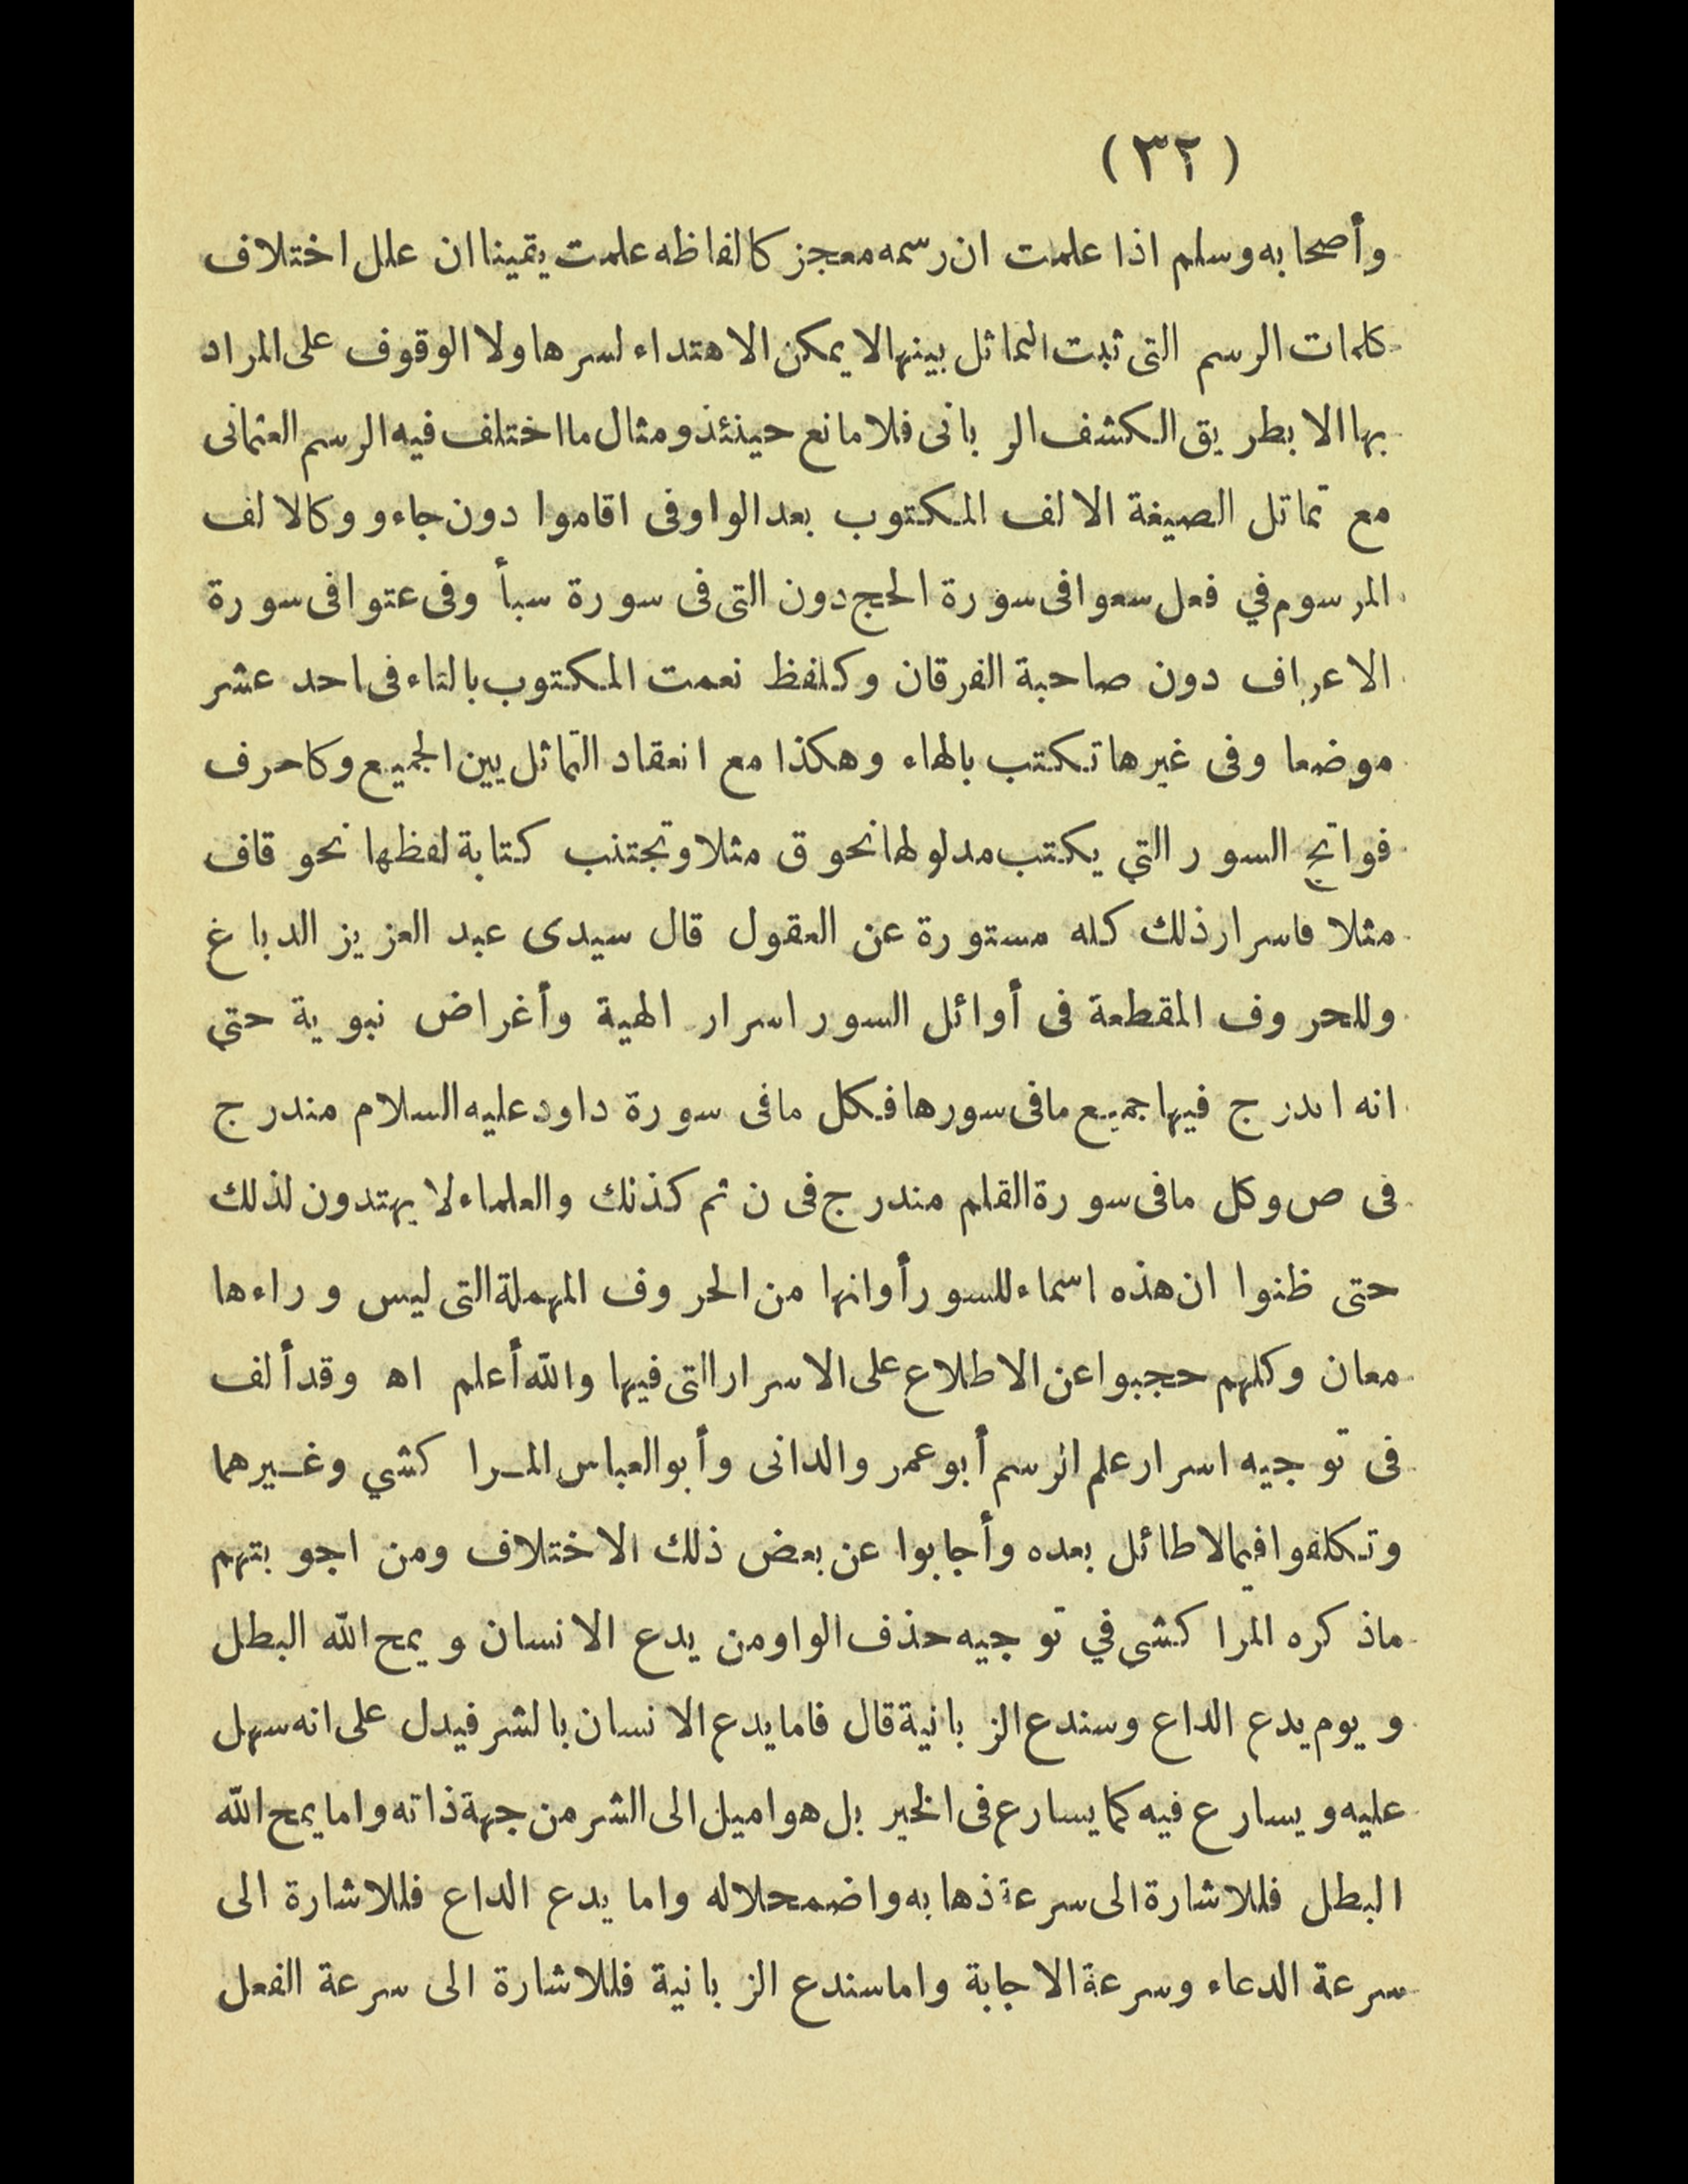 (٣٢)
وأصحابه وسلم اذا علمت ان رسمه معجز كالفاظه علمت يقينا ان علل اختلاف
كلمات الرسم التى ثبت التماثل بينها لا يمكن الاهتداء لسرها ولا الوقوف على المراد
بها الا بطريق الكشف الربانى فلا مانع حينئذ ومثال ما اختلف فيه الرسم العثمانى
مع تماثل الصيغة الالف المكتوب بعد الواو فى اقاموا دون جاءو وكالالف
المرسوم في فعل سعوا فى سورة الحج دون التى فى سورة سبأ وفى عتوا فى سورة
الاعراف دون صاحبة الفرقان وكلفظ نعمت المكتوب بالتاء فى احد عشر
موضعا وفى غيرها تكتب بالهاء وهكذا مع انعقاد التماثل بين الجميع وكاحرف
فواتح السور التي يكتب مدلولها نحو ق مثلا وتجتنب كتابة لفظها نحو قاف
مثلا فاسرار ذلك كله مستورة عن العقول قال سيدى عبد العزيز الدباغ
وللحروف المقطعة فى أوائل السور اسرار الهية وأغراض نبوية حتى
انه اندرج فيها جميع ما فى سورها فكل ما فى سورة داود عليه السلام مندرج
فى ص وكل ما فى سورة القلم مندرج فى ن ثم كذلك والعلماء لا يهتدون لذلك
حتى ظنوا ان هذه اسماء للسور أو انها من الحروف المهملة التى ليس وراءها
معان وكلهم حجبوا عن الاطلاع على الاسرار التى فيها والله أعلم اه وقد ألف
فى توجيه اسرار علم الرسم أبو عمر والدانى وأبو العباس المراكشي وغيرهما
وتكلفوا فيما لا طائل بعده وأجابوا عن بعض ذلك الاختلاف ومن اجوبتهم
ما ذكره المراكشى في توجيه حذف الواو من يدع الانسان ويمح الله البطل
ويوم يدع الداع وسندع الزبانية قال فاما يدع الانسان بالشر فيدل على انه سهل
عليه ويسارع فيه كما يسارع فى الخير بل هو اميل الى الشر من جهة ذاته واما يمح الله
البطل فللاشارة الى سرعة ذهابه واضمحلاله واما يدع الداع فللاشارة الى
سرعة الدعاء وسرعة الاجابة واما سندع الزبانية فللاشارة الى سرعة الفعل